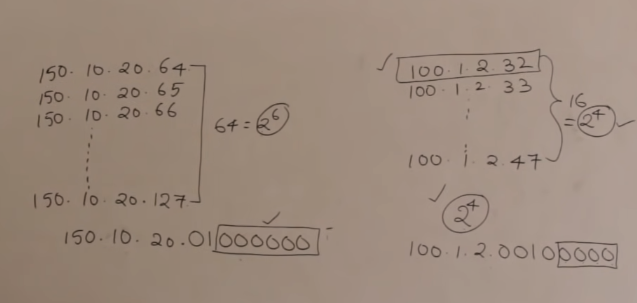 150. 10. 20. 64
150. 10. 20. 65
150. 10. 20. 66
64 = 2⁶
150. 10. 20. 127
150. 10. 20. 01000000
✓
✓
100. 1. 2. 32
100. 1. 2. 33
16
= 2⁴ ✓
100. 1. 2. 47
✓
2⁴
100. 1. 2. 00100000